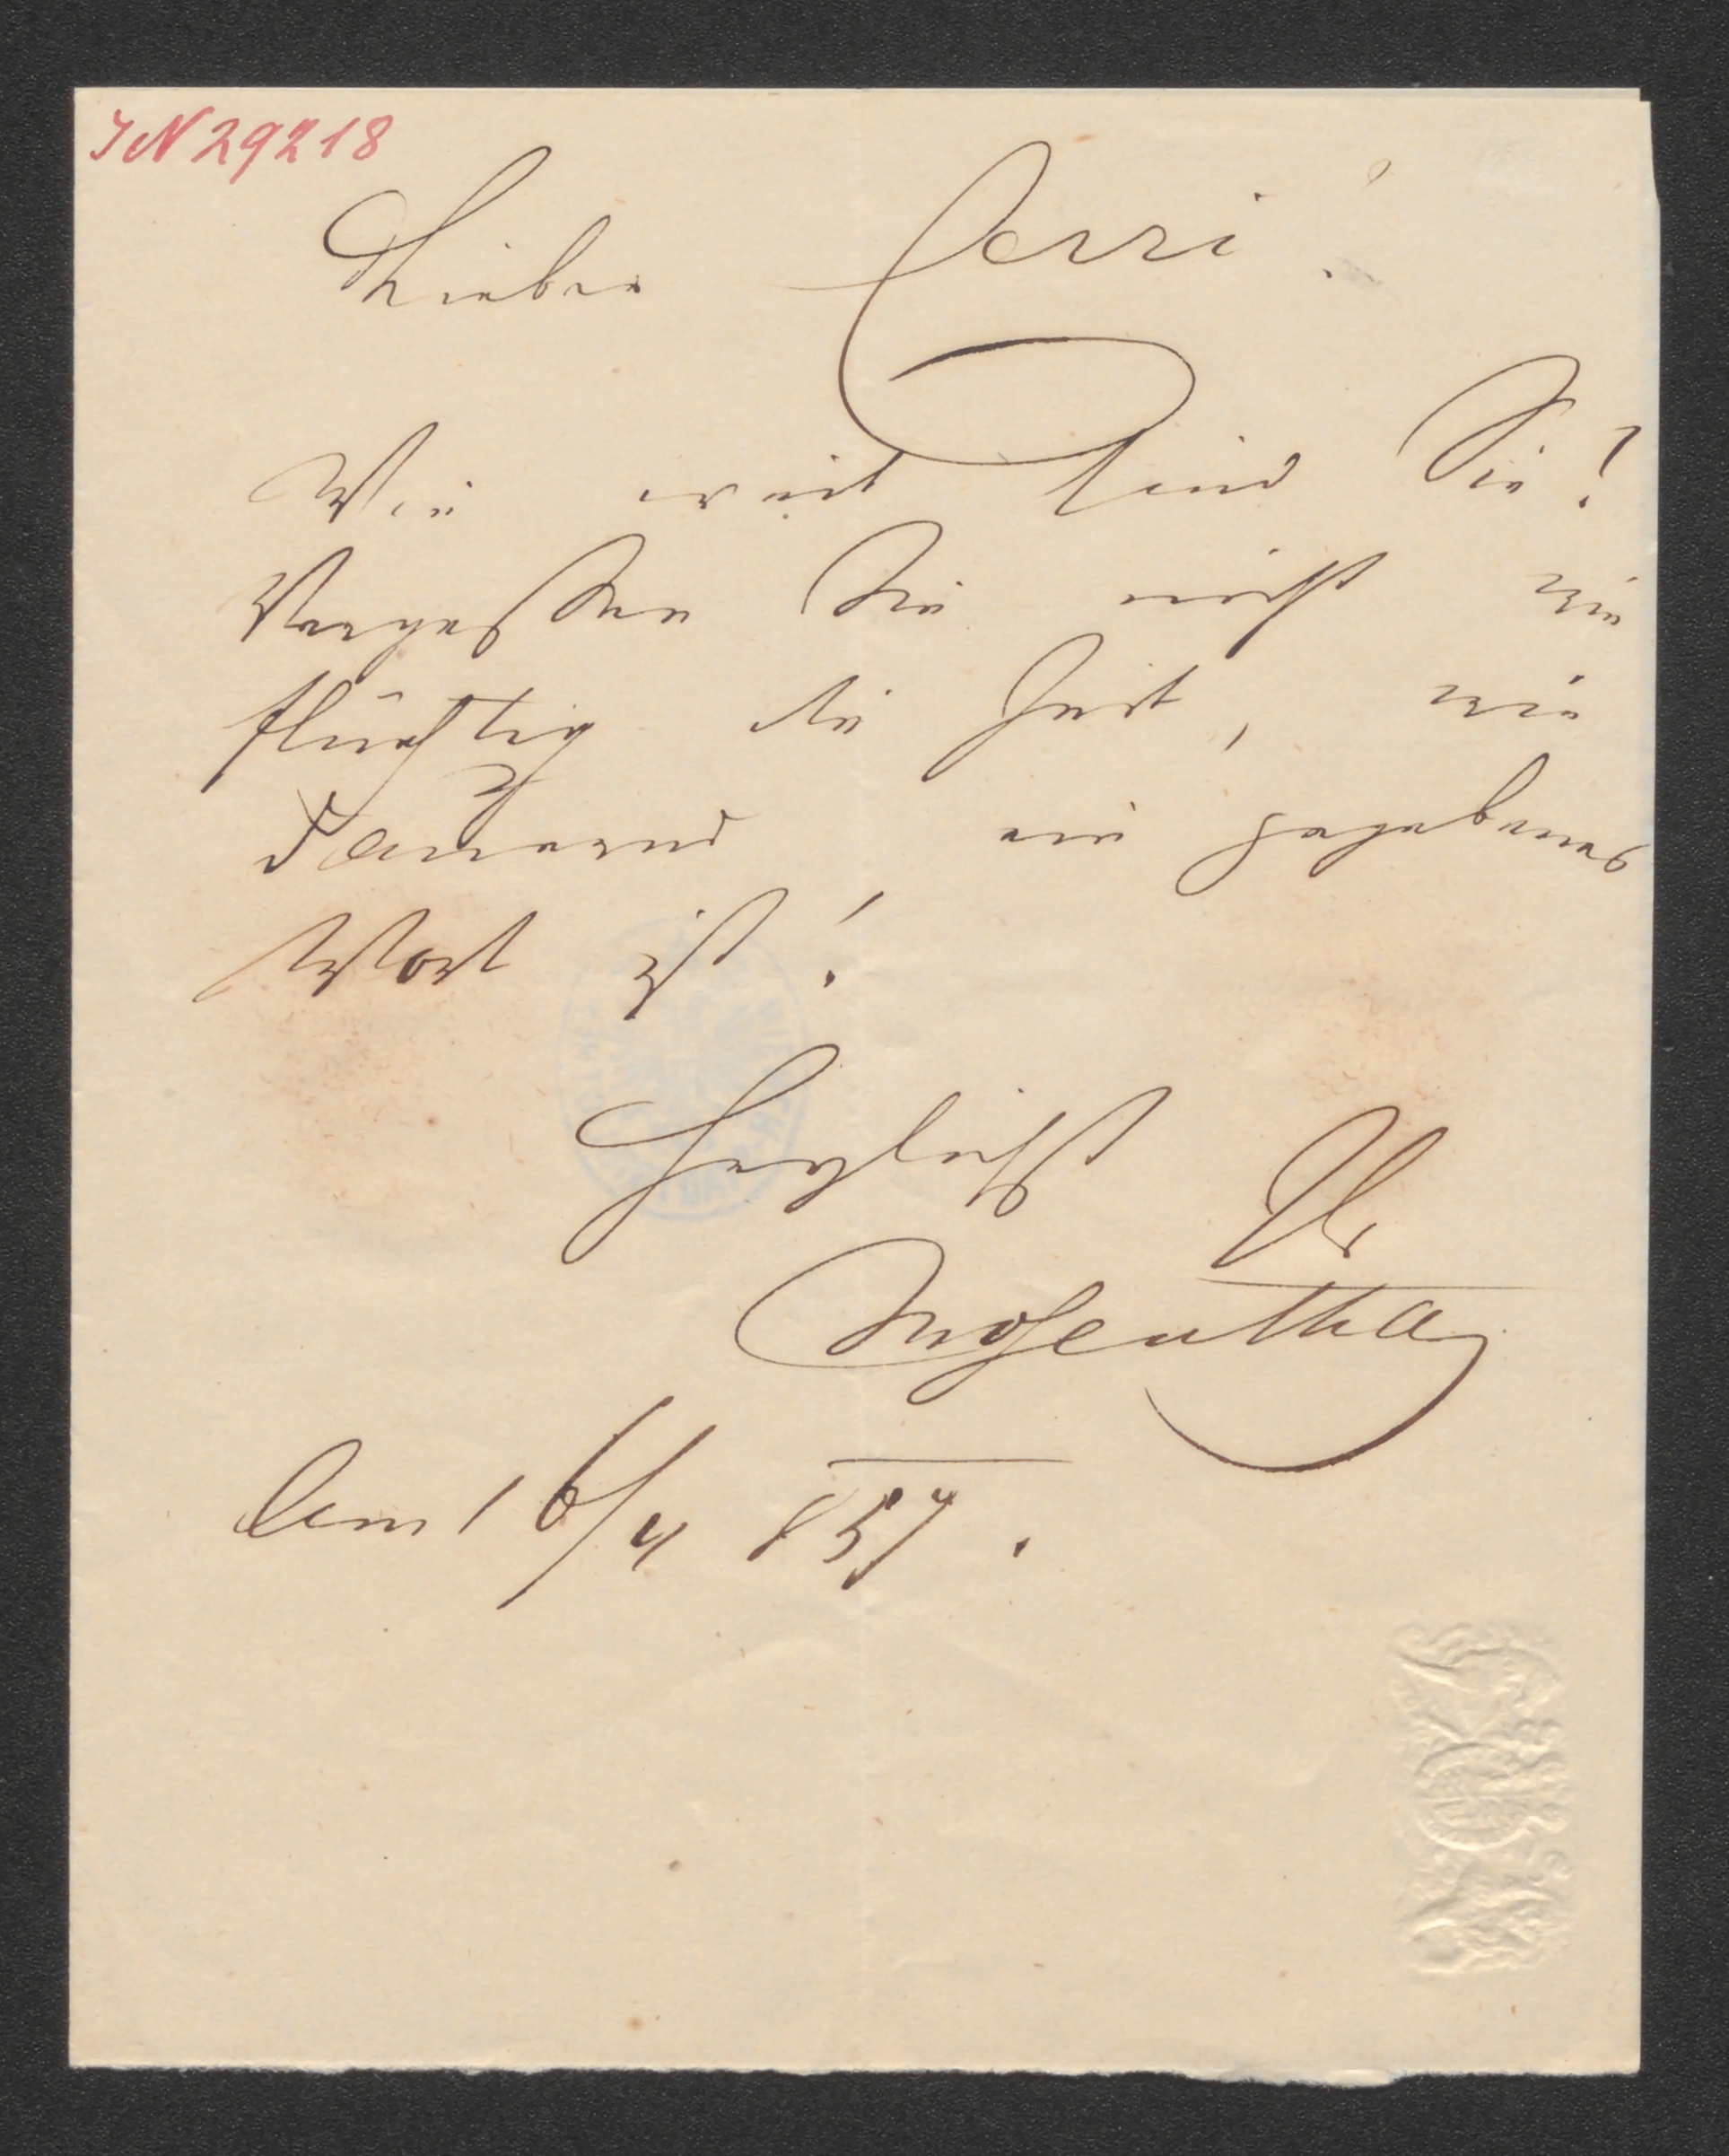 IN 29218
Lieber Cerri!
Wie weit sind Sie?
Vergessen Sie nicht wie
flüchtig die Zeit, wie
dauernd ein gegebenes
Wort ist!
Herzlichst Ihr
Mosenthal
Am 16/4 857.